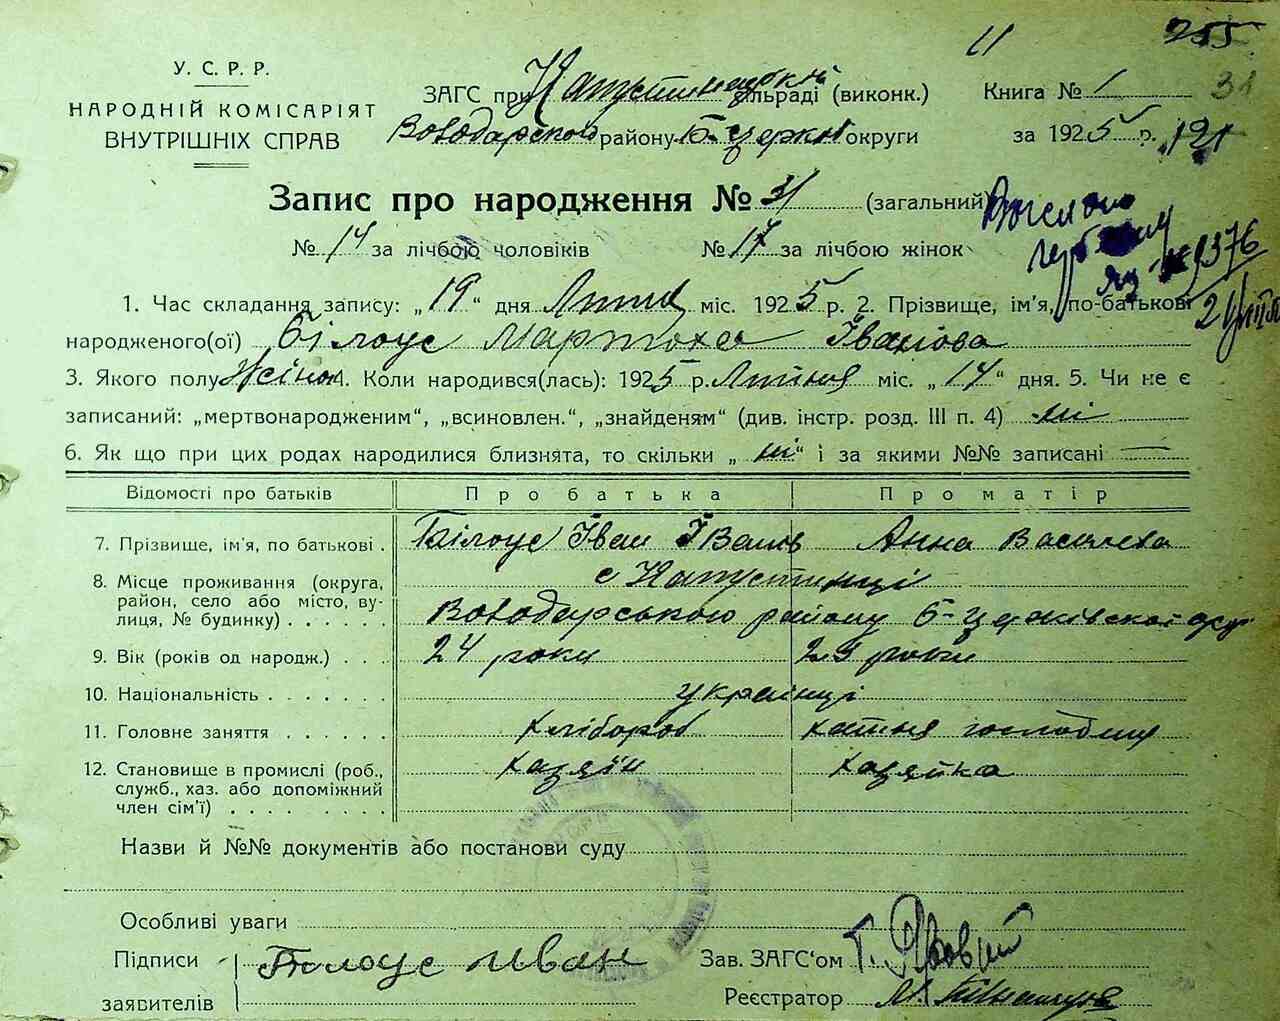 11 255
У. С. Р. Р.
НАРОДНІЙ КОМІСАРІЯТ
ВНУТРІШНІХ СПРАВ
ЗАГС при Капустинській сільраді (виконк.) Книга № 1 31
Володарского району Б-Церків округи за 1925 р. 121
Запис про народження № 31 (загальний)
№ 14 за лічбою чоловіків № 17 за лічбою жінок
1. Час складання запису: „19“ дня Лютня міс. 1925 р. 2. Прізвище, ім'я, по-батькові
народженого(ої) Білоус Мартоха Іванова
3. Якого полу Жіноч 4. Коли народився(лась): 1925 р. Лютня міс. „14“ дня. 5. Чи не є
записаний: „мертвонародженим“, „всиновлен.“, „знайденям“ (див. інстр. розд. III п. 4) ні
6. Як що при цих родах народилися близнята, то скільки „ні“ і за якими №№ записані —
Відомості про батьків Про батька Про матір
7. Прізвище, ім'я, по батькові . Білоус Іван Іванів Анна Василева
8. Місце проживання (округа, с Капустинці
район, село або місто, ву-
лиця, № будинку) . . . . . . Володарського району Б-Церківскої окр
9. Вік (років од народж.) . . . 24 роки 23 роки
10. Національність . . . . . . . українці
11. Головне заняття . . . . . . хлібороб хатня господиня
12. Становище в промислі (роб., хазяїн хазяйка
служб., хаз. або допоміжний
член сім'ї) . . . . . . . . .
Назви й №№ документів або постанови суду
Особливі уваги
Підписи Білоус Иван Зав. ЗАГС'ом
заявителів Реєстратор